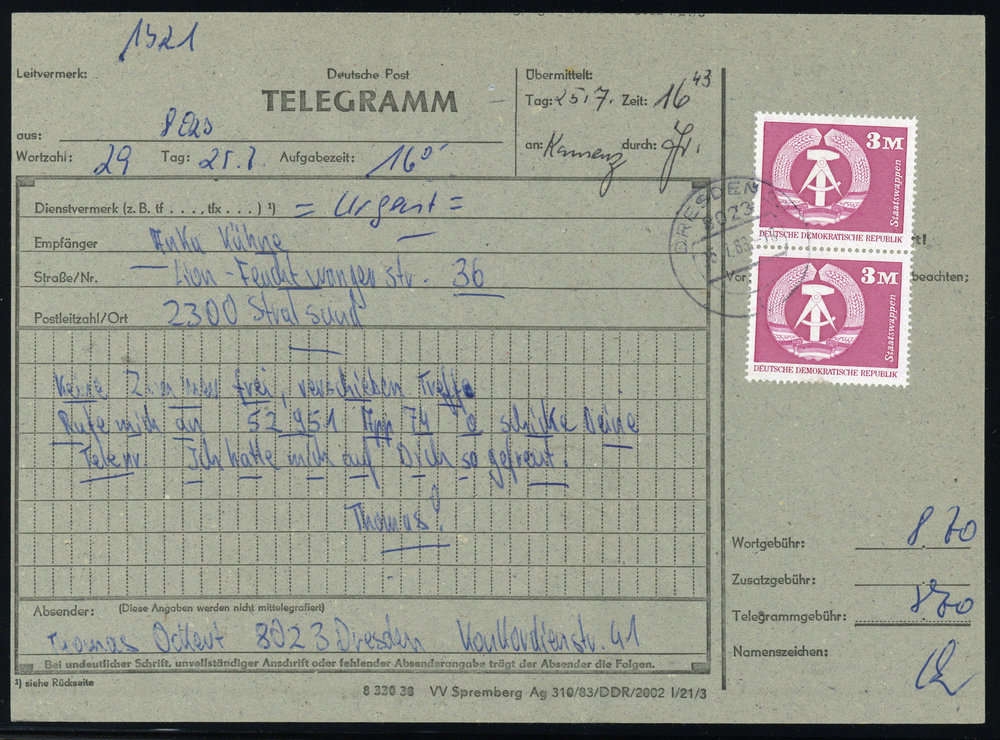 1321
Leitvermerk:
Deutsche Post
TELEGRAMM
Übermittelt:
Tag: 25.7. Zeit: 16 43
aus:
an: Kamenz durch:
Wortzahl: 29 Tag: 25.7. Aufgabezeit: 16 05
Dienstvermerk (z. B. tf . . . ., tfx . . . . ) ¹) = Urgent =
Empfänger Anka Kühne
Straße/Nr. Lion-Feuchtwanger Str. 36
Postleitzahl/Ort 2300 Stralsund
Keine Zimmer frei, verschieben Treff
Rufe mich an 52951 App 74 o schicke Deine
Telenr. Ich hatte mich auf Dich so gefreut.
Thomas!
Absender: (Diese Angaben werden nicht mittelegrafiert)
Thomas 8023 Dresden Konkordienstr. 41
Bei undeutlicher Schrift, unvollständiger Anschrift oder fehlender Absenderangabe trägt der Absender die Folgen.
¹) siehe Rückseite
8 320 38 VV Spremberg Ag 310/83/DDR/2002 I/21/3
DRESDEN
8023
3 M
Staatswappen
DEUTSCHE DEMOKRATISCHE REPUBLIK
3 M
Staatswappen
DEUTSCHE DEMOKRATISCHE REPUBLIK
Vor
beachten;
Wortgebühr: 8.70
Zusatzgebühr:
Telegrammgebühr: 8.70
Namenszeichen: